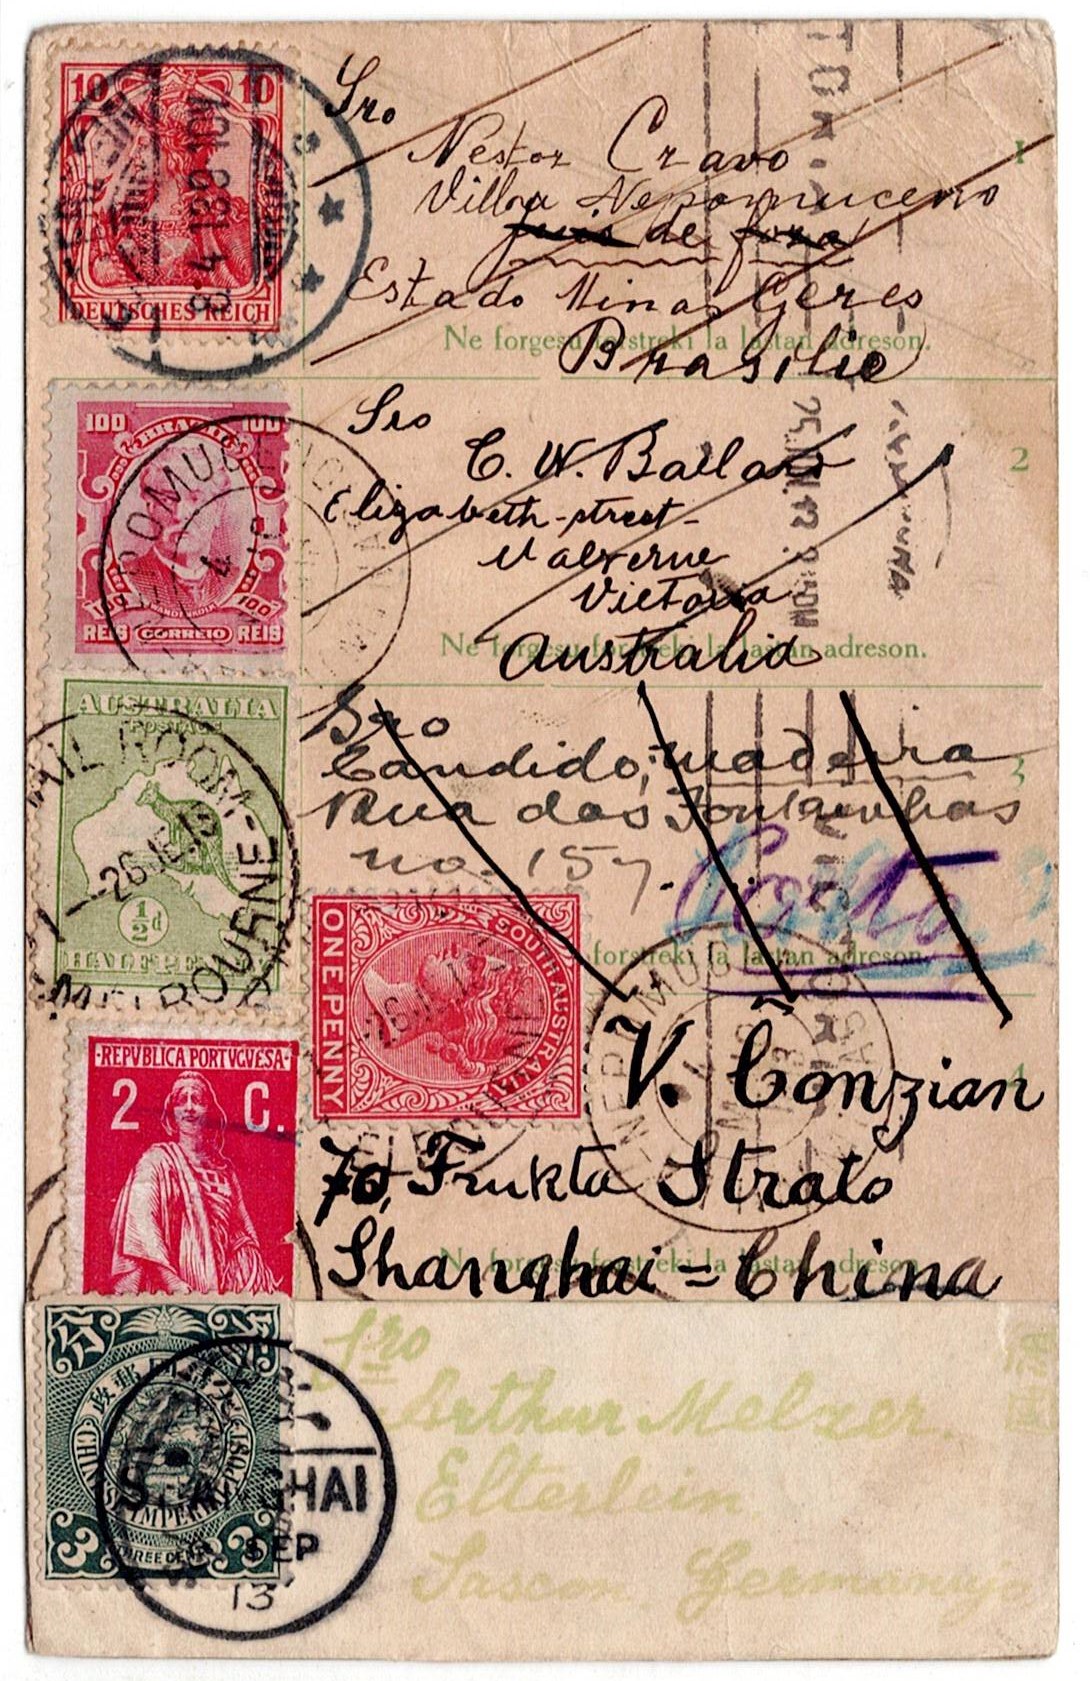 10 10
DEUTSCHES REICH
8.4.13 8-10V
Sro
Nestor Cravo
Villa Nepomuceno
de
Estado Minas Geres
Brasilio
1
Ne forgesu forstreki la lastan adreson.
100 BRASIL 100
100
REIS CORREIO REIS
Sro
C. W. Ballard
Elizabeth-street-
Malverne
Victoria
Australia
2
Ne forgesu forstreki la lastan adreson.
AUSTRALIA
POSTAGE
½d
HALFPENNY
MAIL ROOM-
26 JE 13
MELBOURNE
Sro
Candido, madeira
Rua das Fontainhas
no. 157.
3
Porto
forstreki la lastan adreson.
ONE PENNY
SOUTH AUSTRALIA
26 JE 13
REPVBLICA PORTVGVESA
2 C.
V. Conzian
70, Frukta Strato
Shanghai = China
4
Ne forgesu forstreki la lastan adreson.
CHINESE IMPERIAL POST
3 3
THREE CENTS
SHANGHAI
SEP
13
Sro
Arthur Melzer.
Elterlein
Sascon Germanujo